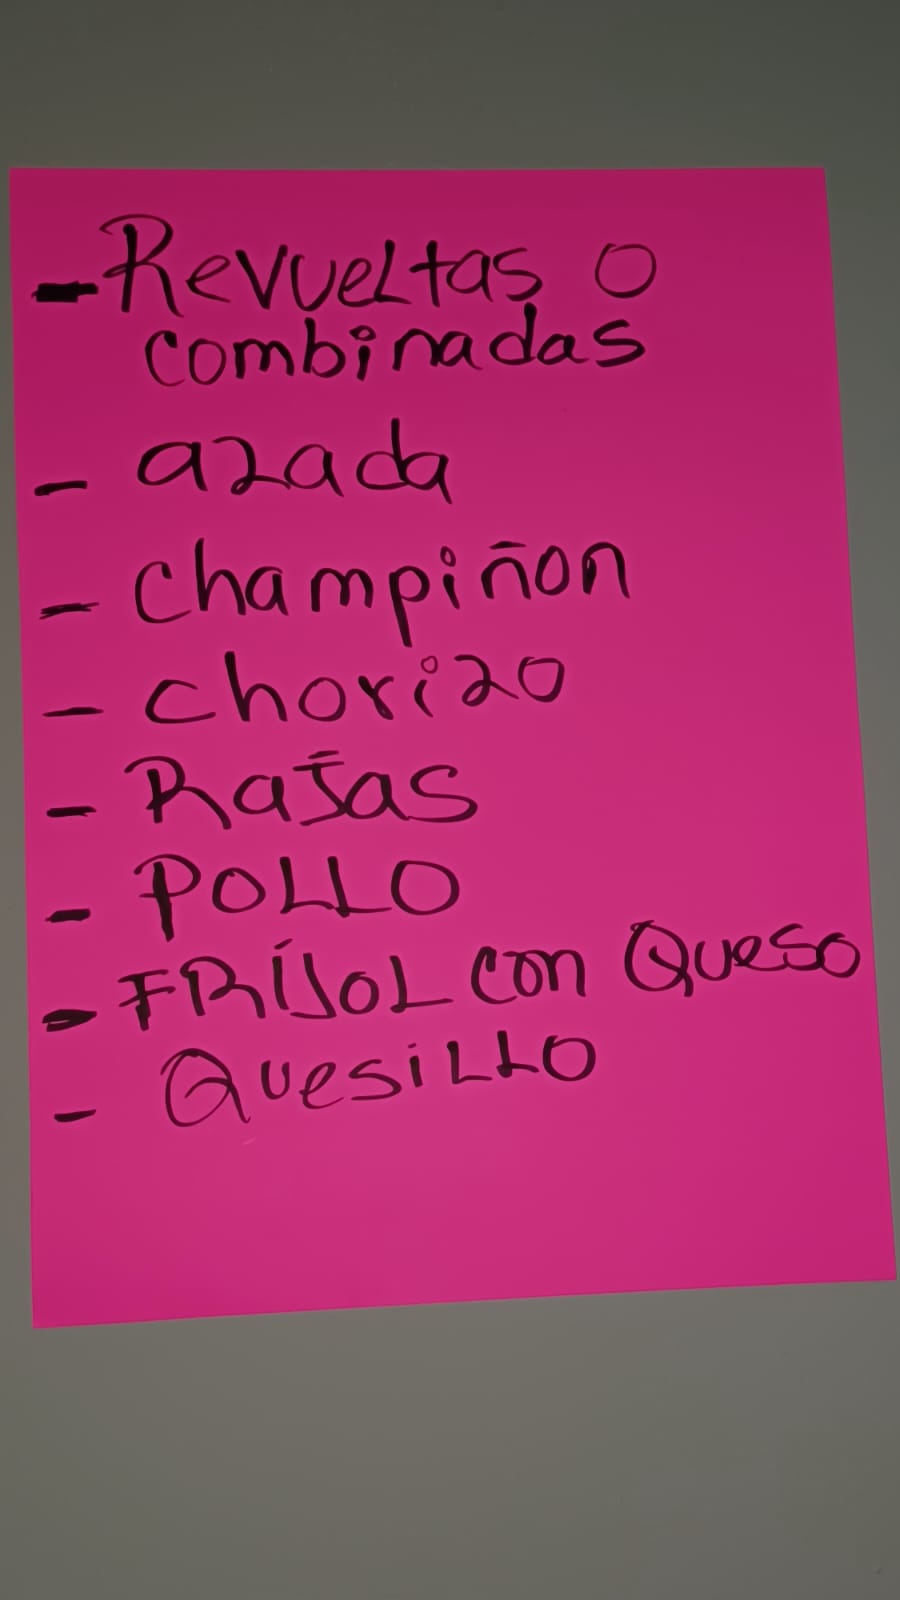 - Revueltas o
combinadas
- azada
- champiñon
- chorizo
- Rajas
- POLLO
- FRÍJOL con Queso
- QuesiLLO